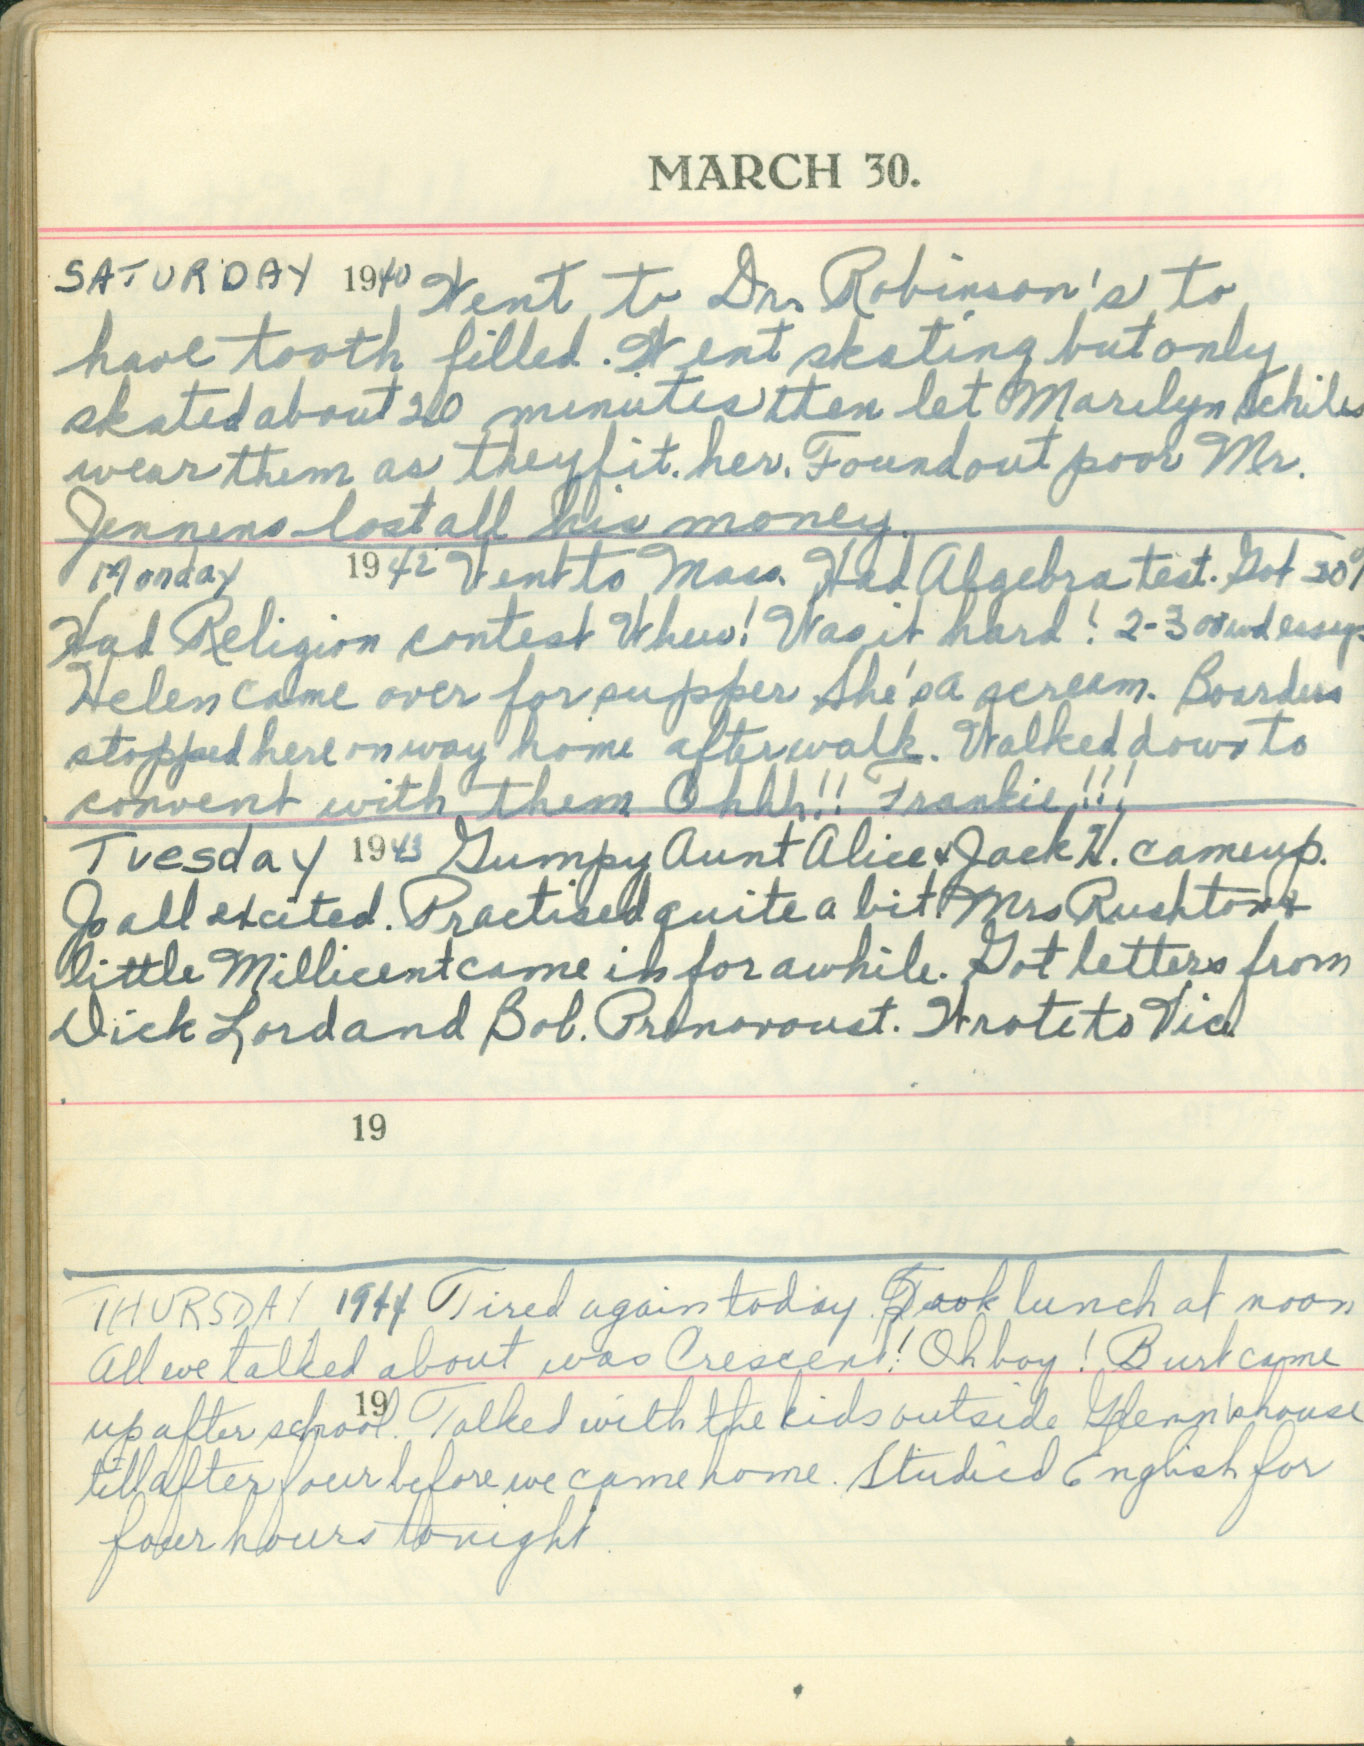 MARCH 30.
SATURDAY 1940 Went to Dr. Robinson's to
have tooth filled. Went skating but only
skated about 20 minutes then let Marilyn Schiles
wear them as they fit. her. Found out poor Mr.
Jennens lost all his money.
Monday 1942 Went to Mass. Had Algebra test. Got
Had Religion contest Whew! Was it hard! 2-300 word essays
Helen came over for supper She's a scream. Boarders
stopped here on way home after walk. Walked down to
convent with them Ohhh!! Frankie!!!
Tuesday 1943 Gumpy Aunt Alice & Jack H. came up.
Jo all excited. Practised quite a bit Mrs Rushton &
little Millicent came in for awhile. Got letters from
Dick Lord and Bob. Pronovoust. Wrote to Vic
19
THURSDAY 1944 Tired again today. Took lunch at noon
All we talked about was Crescent! Oh boy! Burt came
19
up after school. Talked with the kids outside Glenn's house
till after four before we came home. Studied English for
four hours tonight.